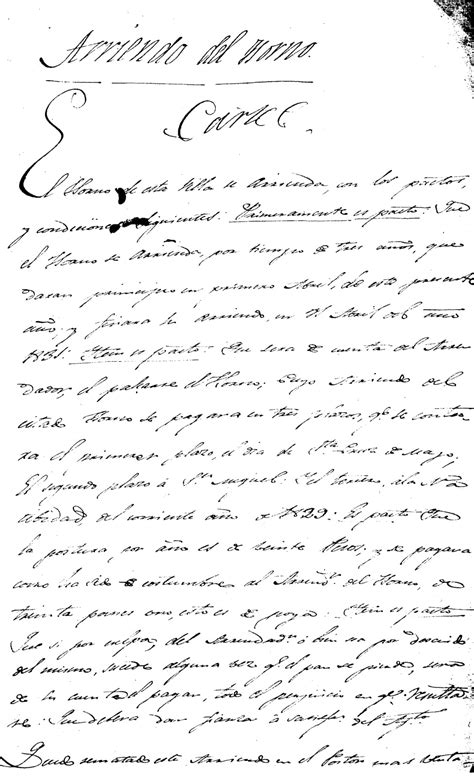 Arriendo del Horno.
Cartel.
El Horno de esta Villa se Arrienda, con los pactos,
y condiciones siguientes: Primeramente es pacto: Que
el Horno se Arrienda, por tiempo de tres años, que
daran principio en primero Abril, de este presente
año; y finara su arriendo, en 1º Abril del año
1831: Item es pacto: Que sera de cuenta del Arren
dador, el Horno; cuyo Arriendo del
citado Horno se pagara en tres plazos, qe. se conta
ra el primer plazo, el dia de Sta. de Mayo;
El segundo plazo á Sn. Miguel: Y el tercero, á la Na
tibidad, del corriente año de 1829: Es pacto Que
la postura, por año es de veinte Pesos; y se pagara
como ha de costumbre al Arrendr. del Horno, de
treinta panes uno, esto es de poya: Item es pacto
Que si por culpa, del Arrendadr. ó bien sea por descuido
del mismo, sucede alguna vez qe. el pan se pierde, sera
de su cuenta el pagar, todo el perjuicio en qe. resulta
se: Que debera dar fianza á satisfn. del Ayto.
Quede rematado este Arriendo en el Postor mas